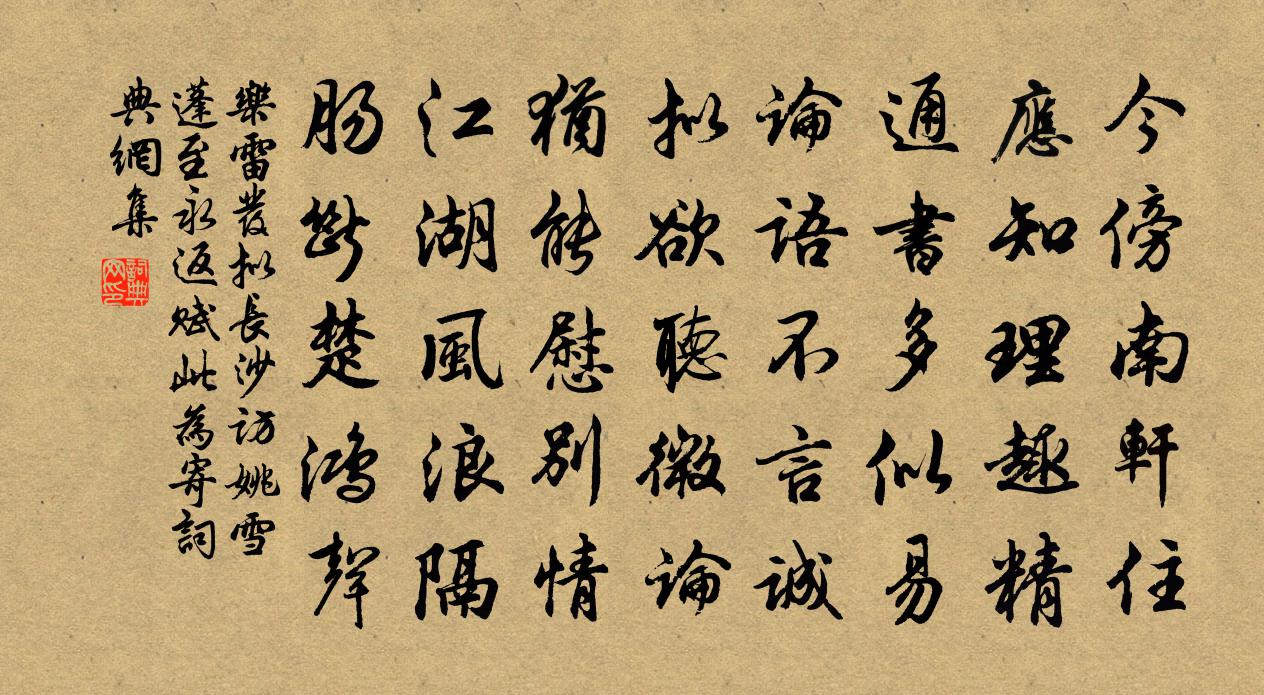 今傍南軒住
應知理趣精
通書多似易
論語不言誠
拟欲聽微論
猶能慰別情
江湖風浪隔
肠斷楚鴻聲
樂雷發拟長沙訪姚雪
蓬至永返賦此為寄詞
典網集
詞典网印